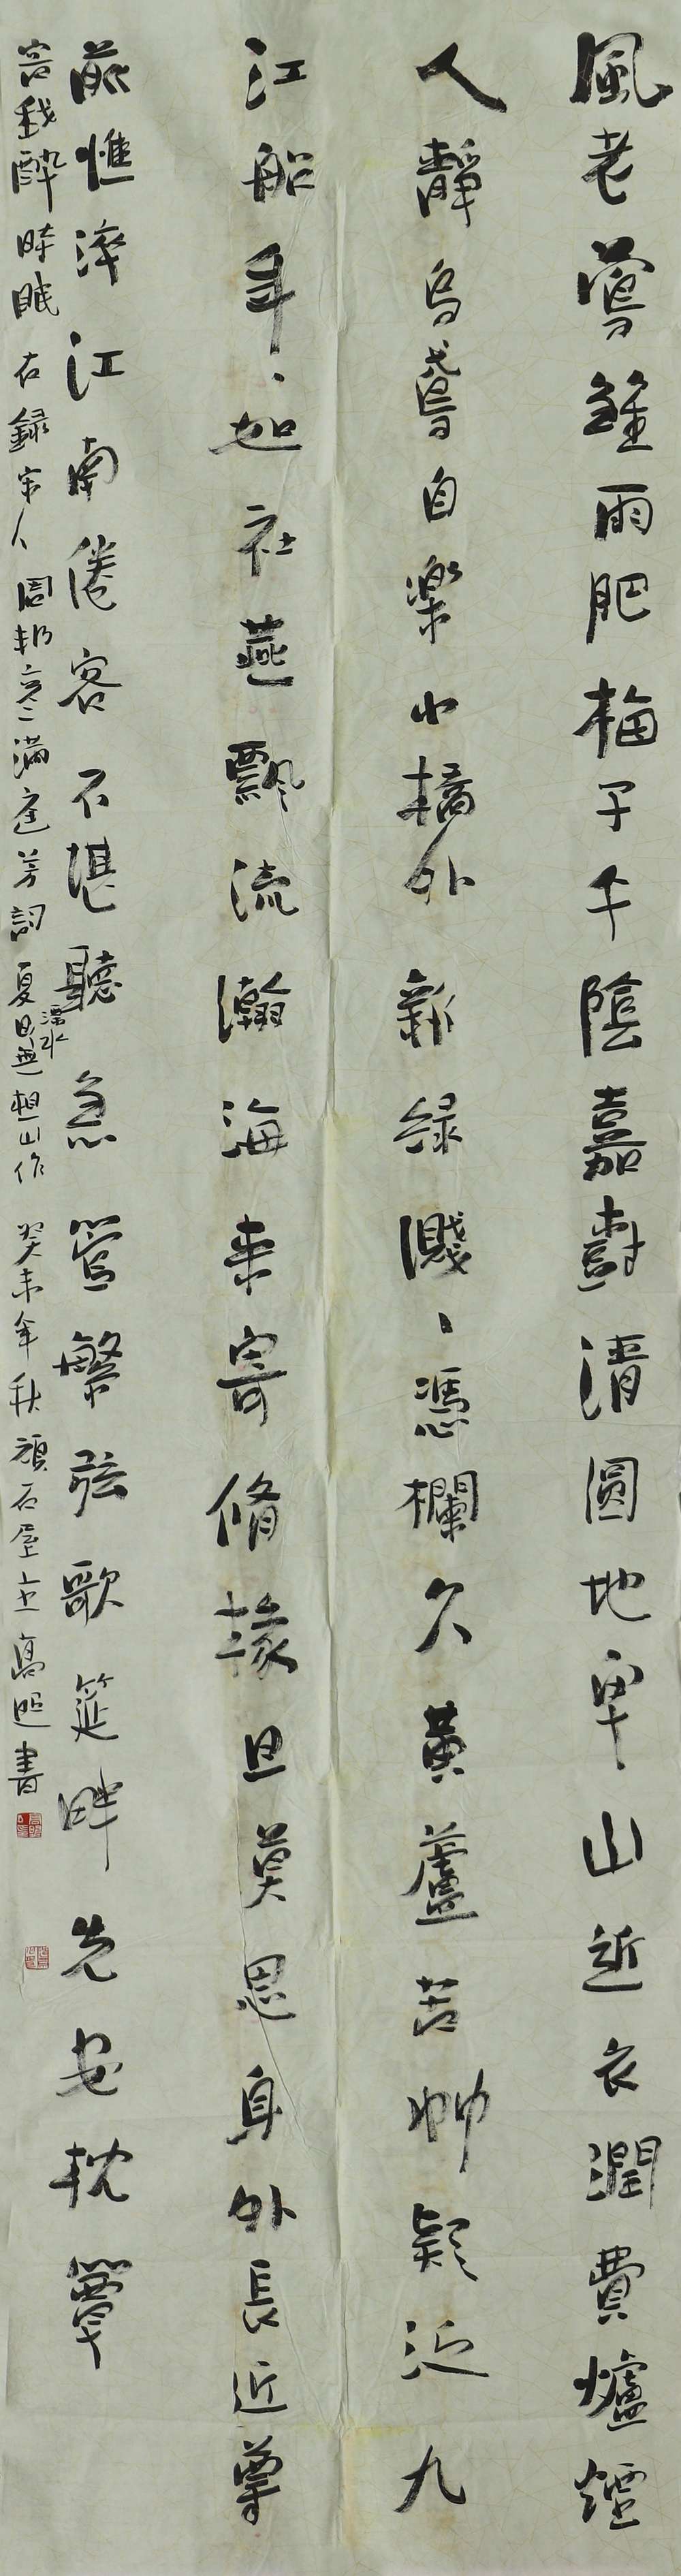 風老鶯雛雨肥梅子午陰嘉樹清圓地卑山近衣潤費爐煙
人靜烏鳶自樂小橋外新綠濺、憑欄久黃蘆苦竹疑泛九
江船年、如社燕飄流瀚海來寄脩椽且莫思身外長近尊
前憔悴江南倦客不堪聽急管繁弦歌筵畔先安枕簟
容我醉時眠 右錄宋人周邦彥滿庭芳詞 夏日溧水無想山作 癸未年秋頑石屋主高照書